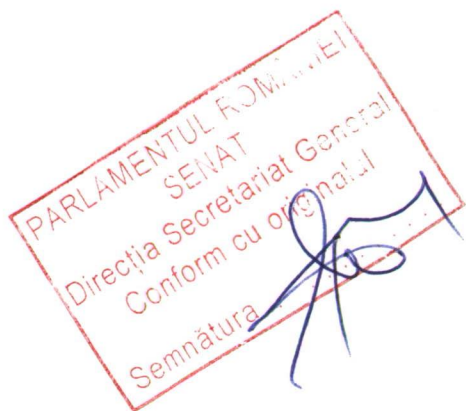 PARLAMENTUL ROMÂNIEI
SENAT
Direcția Secretariat General
Conform cu originalul
Semnătura